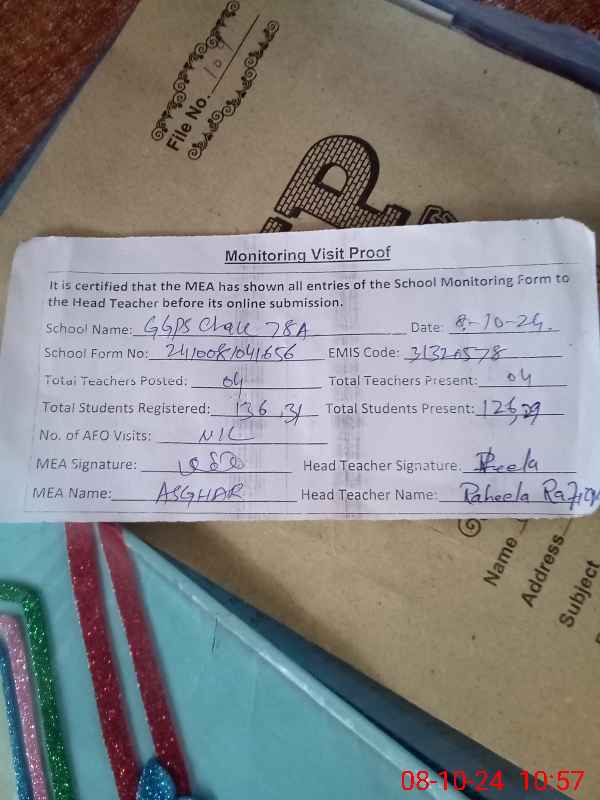 File No. 109
P
Monitoring Visit Proof
It is certified that the MEA has shown all entries of the School Monitoring Form to
the Head Teacher before its online submission.
School Name: GGPS Chak 78A Date: 8-10-24.
School Form No: 241008/041656 EMIS Code: 31320578
Total Teachers Posted: 04 Total Teachers Present: 04
Total Students Registered: 136, 31 Total Students Present: 126, 29
No. of AFO Visits: NIL
MEA Signature: Head Teacher Signature: Raheela
MEA Name: ASGHAR Head Teacher Name: Raheela
Name
Address
Subject
08-10-24 10:57